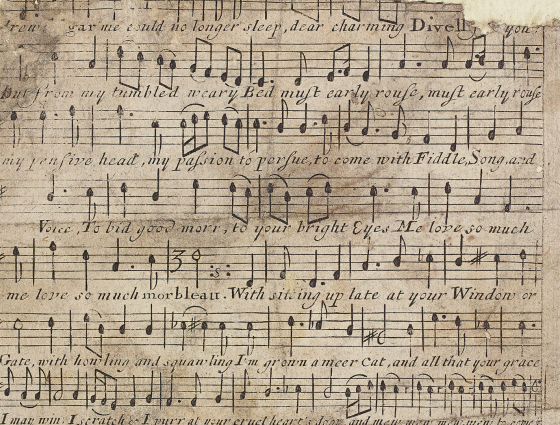 gar me could no longer sleep, dear charming Divell, you
But from my tumbled weary Bed must early rouse, must early rouse
my pensive head, my passion to persue, to come with Fiddle, Song, and
Voice, To bid good morr, to your bright Eyes Me love so much
39
:s:
me love so much morbleau. With sitting up late at your Window or
Gate, with howling and squawling I'm grown a meer Cat, and all that your grace
I may win I scratch & I purr at your cruel heart's door and mew mew mew mew to come